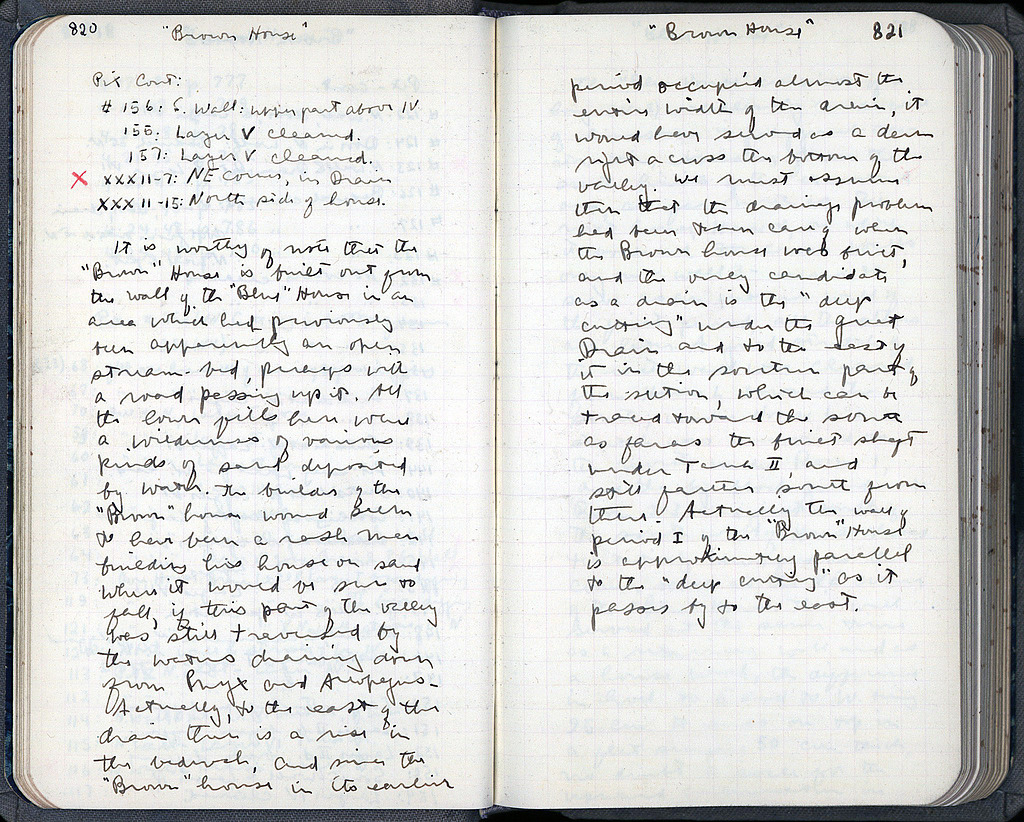 820
"Brown House"
Pit Cont:
# 156: S. Wall: upper part above IV
155: Layer V cleared.
157: Layer V cleared.
X XXXII-7: NE Corner, in Drain
XXXII-15: North side of house.
It is worthy of note that the
"Brown" House is built out from
the wall of the "Blue" House in an
area which had previously
been apparently an open
stream-bed, perhaps with
a road passing up it. All
the lower fills here were
a wilderness of various
kinds of sand deposited
by water. The builder of the
"Brown" house would seem
to have been a rash man
building his house on sand
where it would be sure to
fall, if this part of the valley
was still traversed by
the waters draining down
from Pnyx and Areopagus.
Actually, to the east of the
drain there is a rise in
the bedrock, and since the
"Brown" house in its earlier
"Brown House"
821
period occupied almost the
entire width of the drain, it
would have served as a dam
right across the bottom of the
valley. We must assume
then that the drainage problem
had been taken care of when
the Brown house was built,
and the only candidate
as a drain is the "deep
cutting" under the Great
Drain and to the east of
it in the southern part of
the section, which can be
traced toward the south
as far as the first shaft
under Tank II, and
still farther south from
there. Actually the wall of
period I of the "Brown" House
is approximately parallel
to the "deep cutting" as it
passes by to the east.